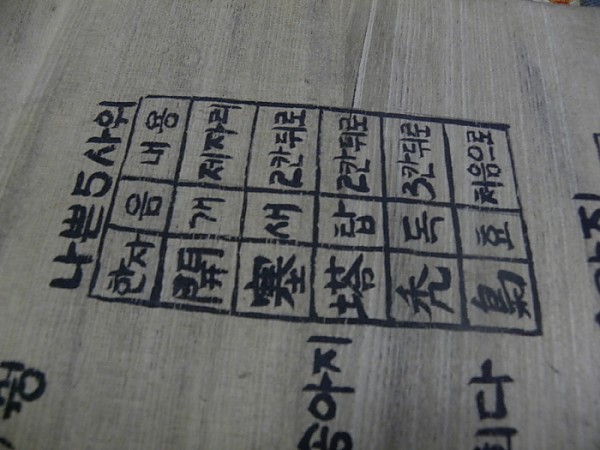 나쁜5사위
한자 음 내용
開 개 제자리
塞 새 2칸뒤로
塔 탑 2칸뒤로
禿 독 3칸뒤로
梟 효 처음으로
송아지